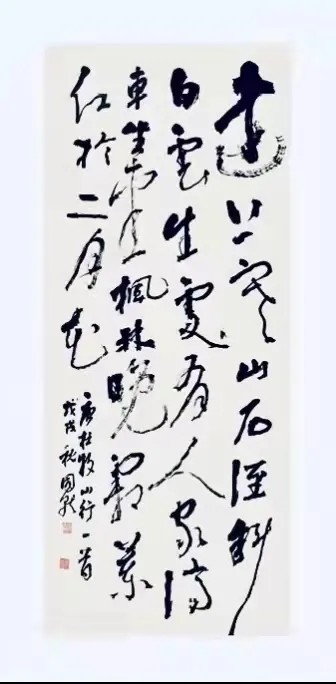 遠上寒山石徑斜
白雲生處有人家停
車坐愛楓林晚霜葉
红於二月花
唐杜牧山行一首
戊戌秋國